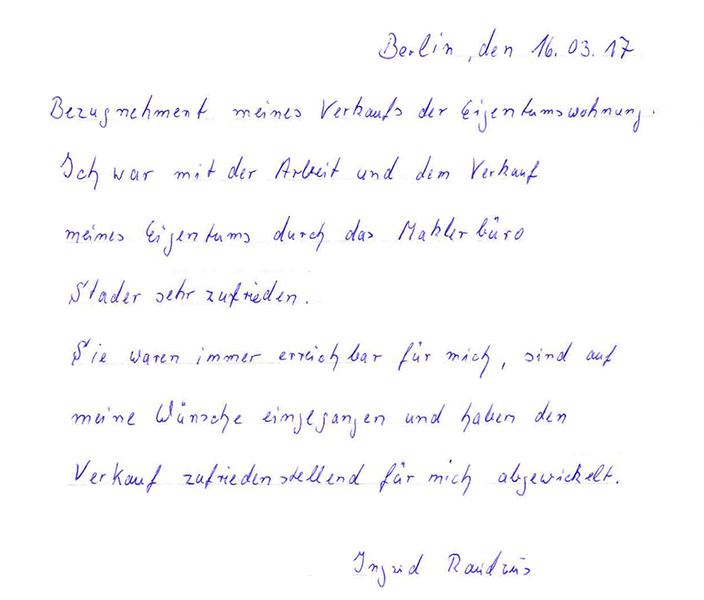 Berlin, den 16.03.17
Bezugnehment meines Verkaufs der Eigentumswohnung.
Ich war mit der Arbeit und dem Verkauf
meines Eigentums durch das Maklerbüro
Stader sehr zufrieden.
Sie waren immer erreichbar für mich, sind auf
meine Wünsche eingegangen und haben den
Verkauf zufriedenstellend für mich abgewickelt.
Ingrid